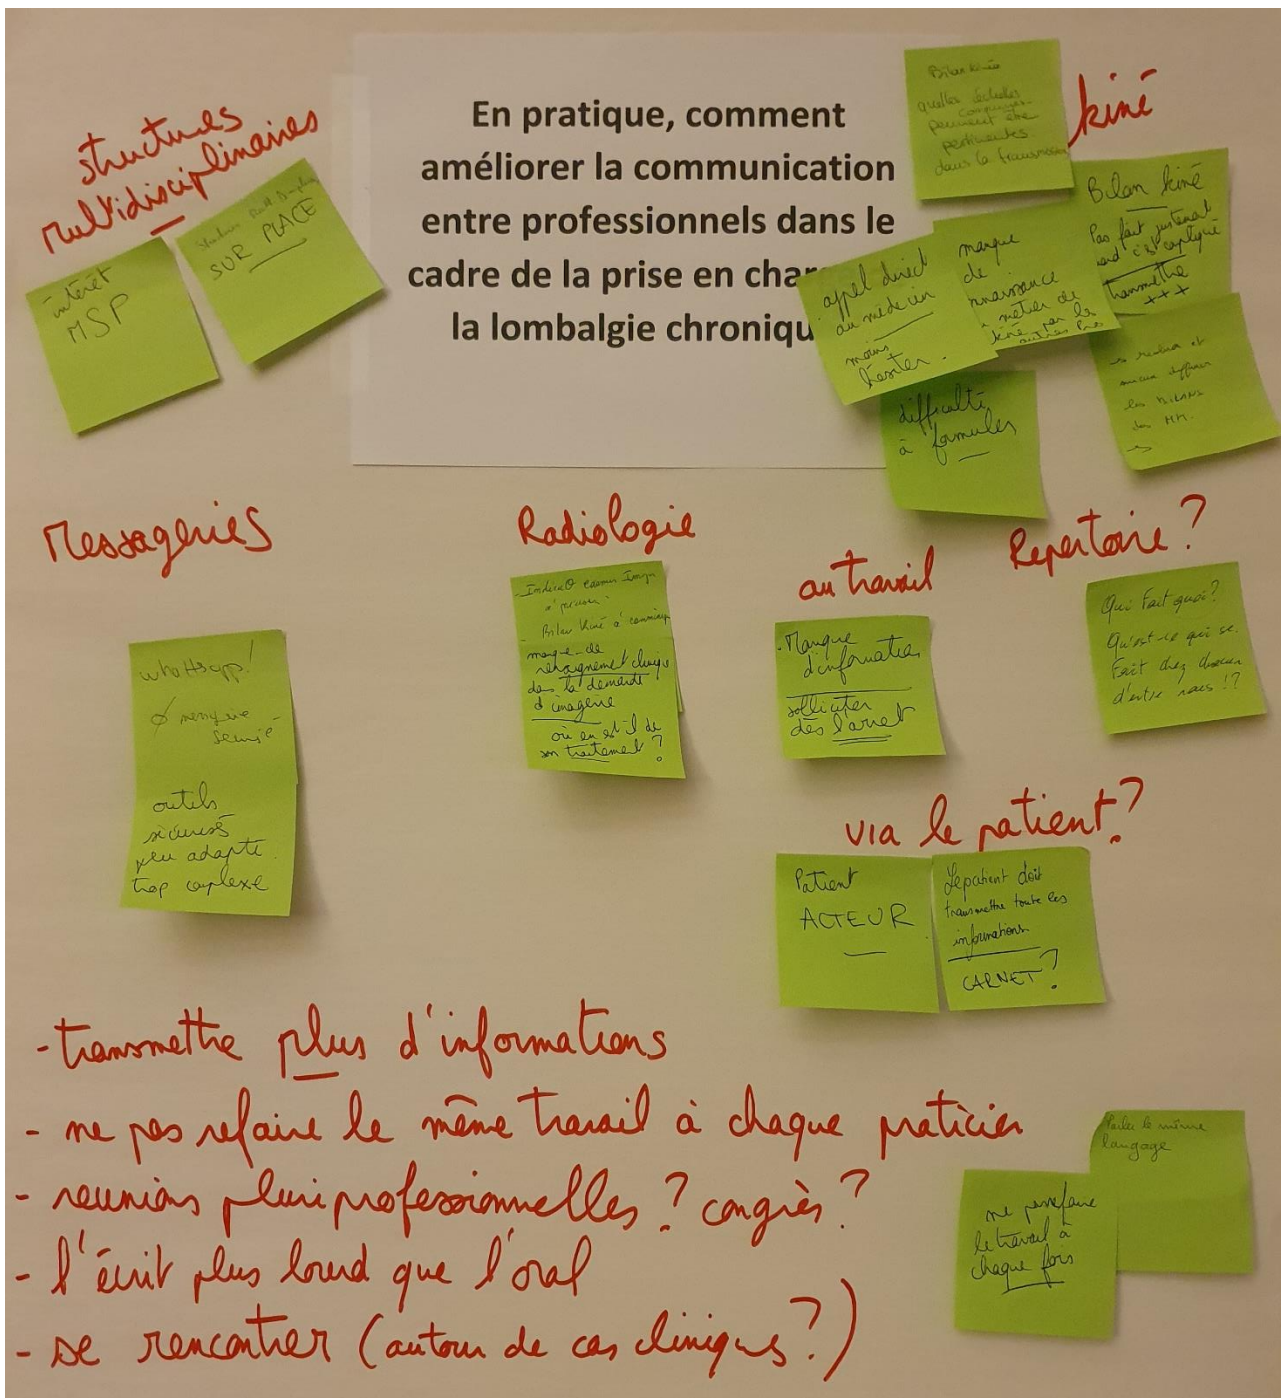 structures
multidisciplinaires
intérêt
MSP
SUR PLACE
En pratique, comment
améliorer la communication
entre professionnels dans le
cadre de la prise en char
la lombalgie chroniqu
kiné
Bilan kiné
quelles échelles
communes
peuvent être
pertinentes
dans la transmission
Bilan kiné
Pas fait justement
quand c'est compliqué
transmettre
+++
manque
de
nnaissance
métier de
kiné par les
autres Pro
appel direct
au médecin
moins
hésiter.
difficulté
à formuler
mieux diffuser
les BILANS
des MK.
Messageries
whattsapp!
Ø messagerie
sécurisé
outils
sécurisés
peu adapté
trop complexe
Radiologie
- Indica° examen Imagerie
à préciser.
- Bilan Kiné à communiquer
manque de
renseignement clinique
dans la demande
d'imagerie
où en est il de
son traitement?
au travail
- Manque
d'information
solliciter
dès l'arret
Repertoire?
Qui Fait quoi?
Qu'est-ce qui se
Fait chez chacun
d'entre nous!?
via le patient?
Patient
ACTEUR
Le patient doit
transmettre toute les
informations
CARNET?
- transmettre plus d'informations
- ne pas refaire le même travail à chaque praticien
- reunions pluriprofessionnelles? congrès?
- l'écrit plus lourd que l'oral
- se rencontrer (autour de cas cliniques?)
Parler le même
langage
ne pas refaire
le travail à
chaque fois